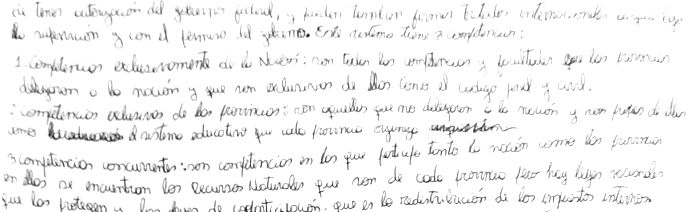 de tener autorización del gobierno federal, y pueden tambien firmar tratados internacionales aunque bajo
la supervision y con el permiso del gobierno. Este sistema tiene 3 competencias:
1. Competencias exclusivamente de la Nación: son todas las competencias y facultades que las provincias
delegaron a la nación y que son exclusivas de ellas como el codigo penal y civil.
2 competencias exclusivas de las provincias: son aquellas que no delegaron a la nación y son propias de ellas
como el sistema educativo que cada provincia organiza
3 competencias concurrentes: son competencias en las que participa tanto la nación como las provincias
en ellas se encuentran los Recursos Naturales que son de cada provincia pero hay leyes nacionales
que los protegen y las leyes de coparticipación. que es la redistribución de los impuestos internos